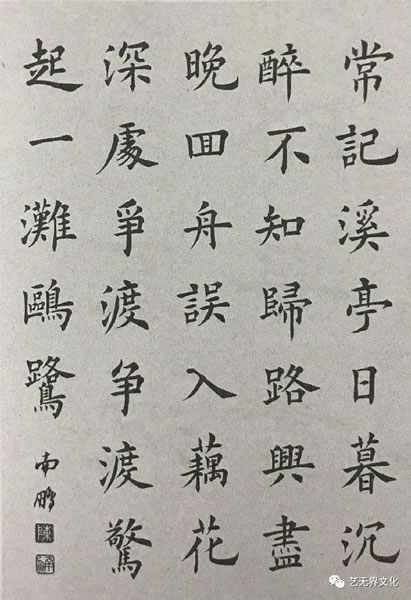 常記溪亭日暮沉
醉不知歸路興盡
晚囬舟誤入藕花
深處爭渡争渡驚
起一灘鷗鷺
南鵬
艺无界文化